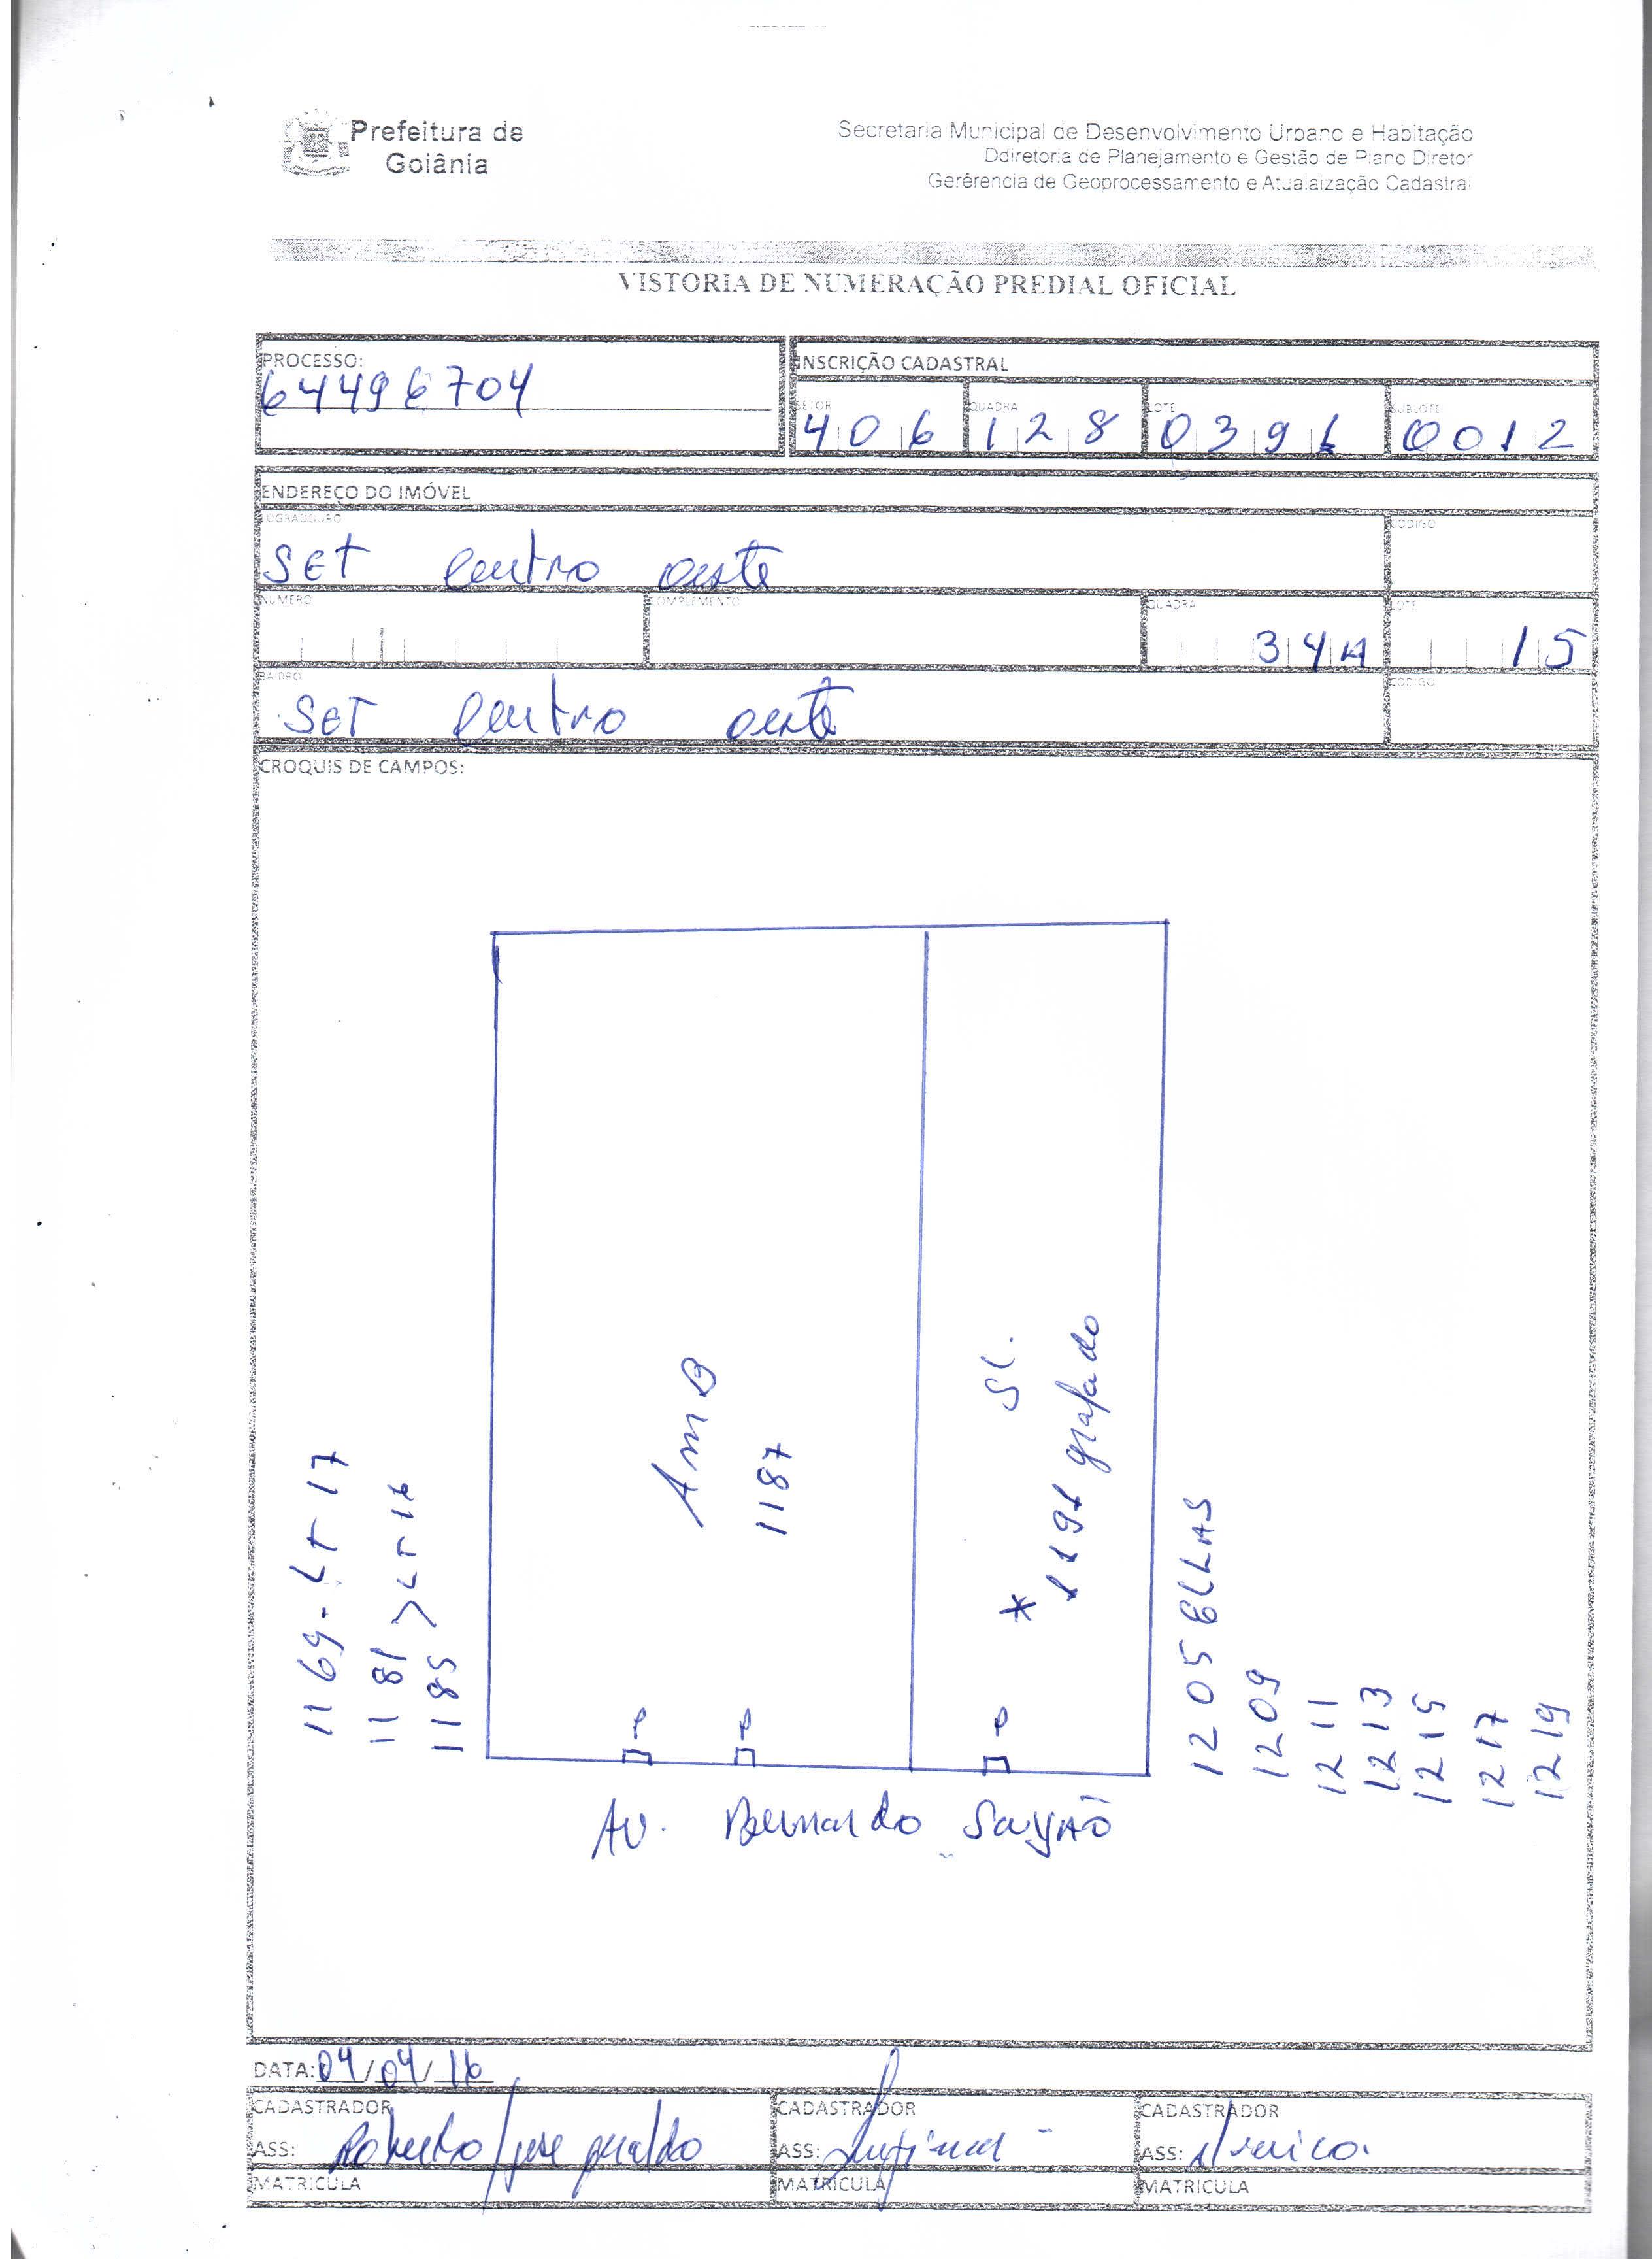 Prefeitura de
Goiânia
Secretaria Municipal de Desenvolvimento Urbano e Habitação
Ddiretoria de Planejamento e Gestão de Plano Diretor
Gerêrencia de Geoprocessamento e Atualaização Cadastral
VISTORIA DE NUMERAÇÃO PREDIAL OFICIAL
PROCESSO:
64496704
INSCRIÇÃO CADASTRAL
SETOR QUADRA LOTE SUBLOTE
406 128 0396 0012
ENDEREÇO DO IMÓVEL
LOGRADOURO CODIGO
SET Centro oeste
NUMERO COMPLEMENTO QUADRA LOTE
34A 15
BAIRRO CODIGO
SET Centro oeste
CROQUIS DE CAMPOS:
1169 - LT 17
1181 > LT 16
1185
1187
SL.
* 1191 grafado
1205
1209
1211
1213
1215
1217
1219
P P P
AV. Bernardo Sayão
DATA: 04/04/16
CADASTRADOR CADASTRADOR CADASTRADOR
ASS: Roberto / jose geraldo ASS: ASS:
MATRICULA MATRICULA MATRICULA